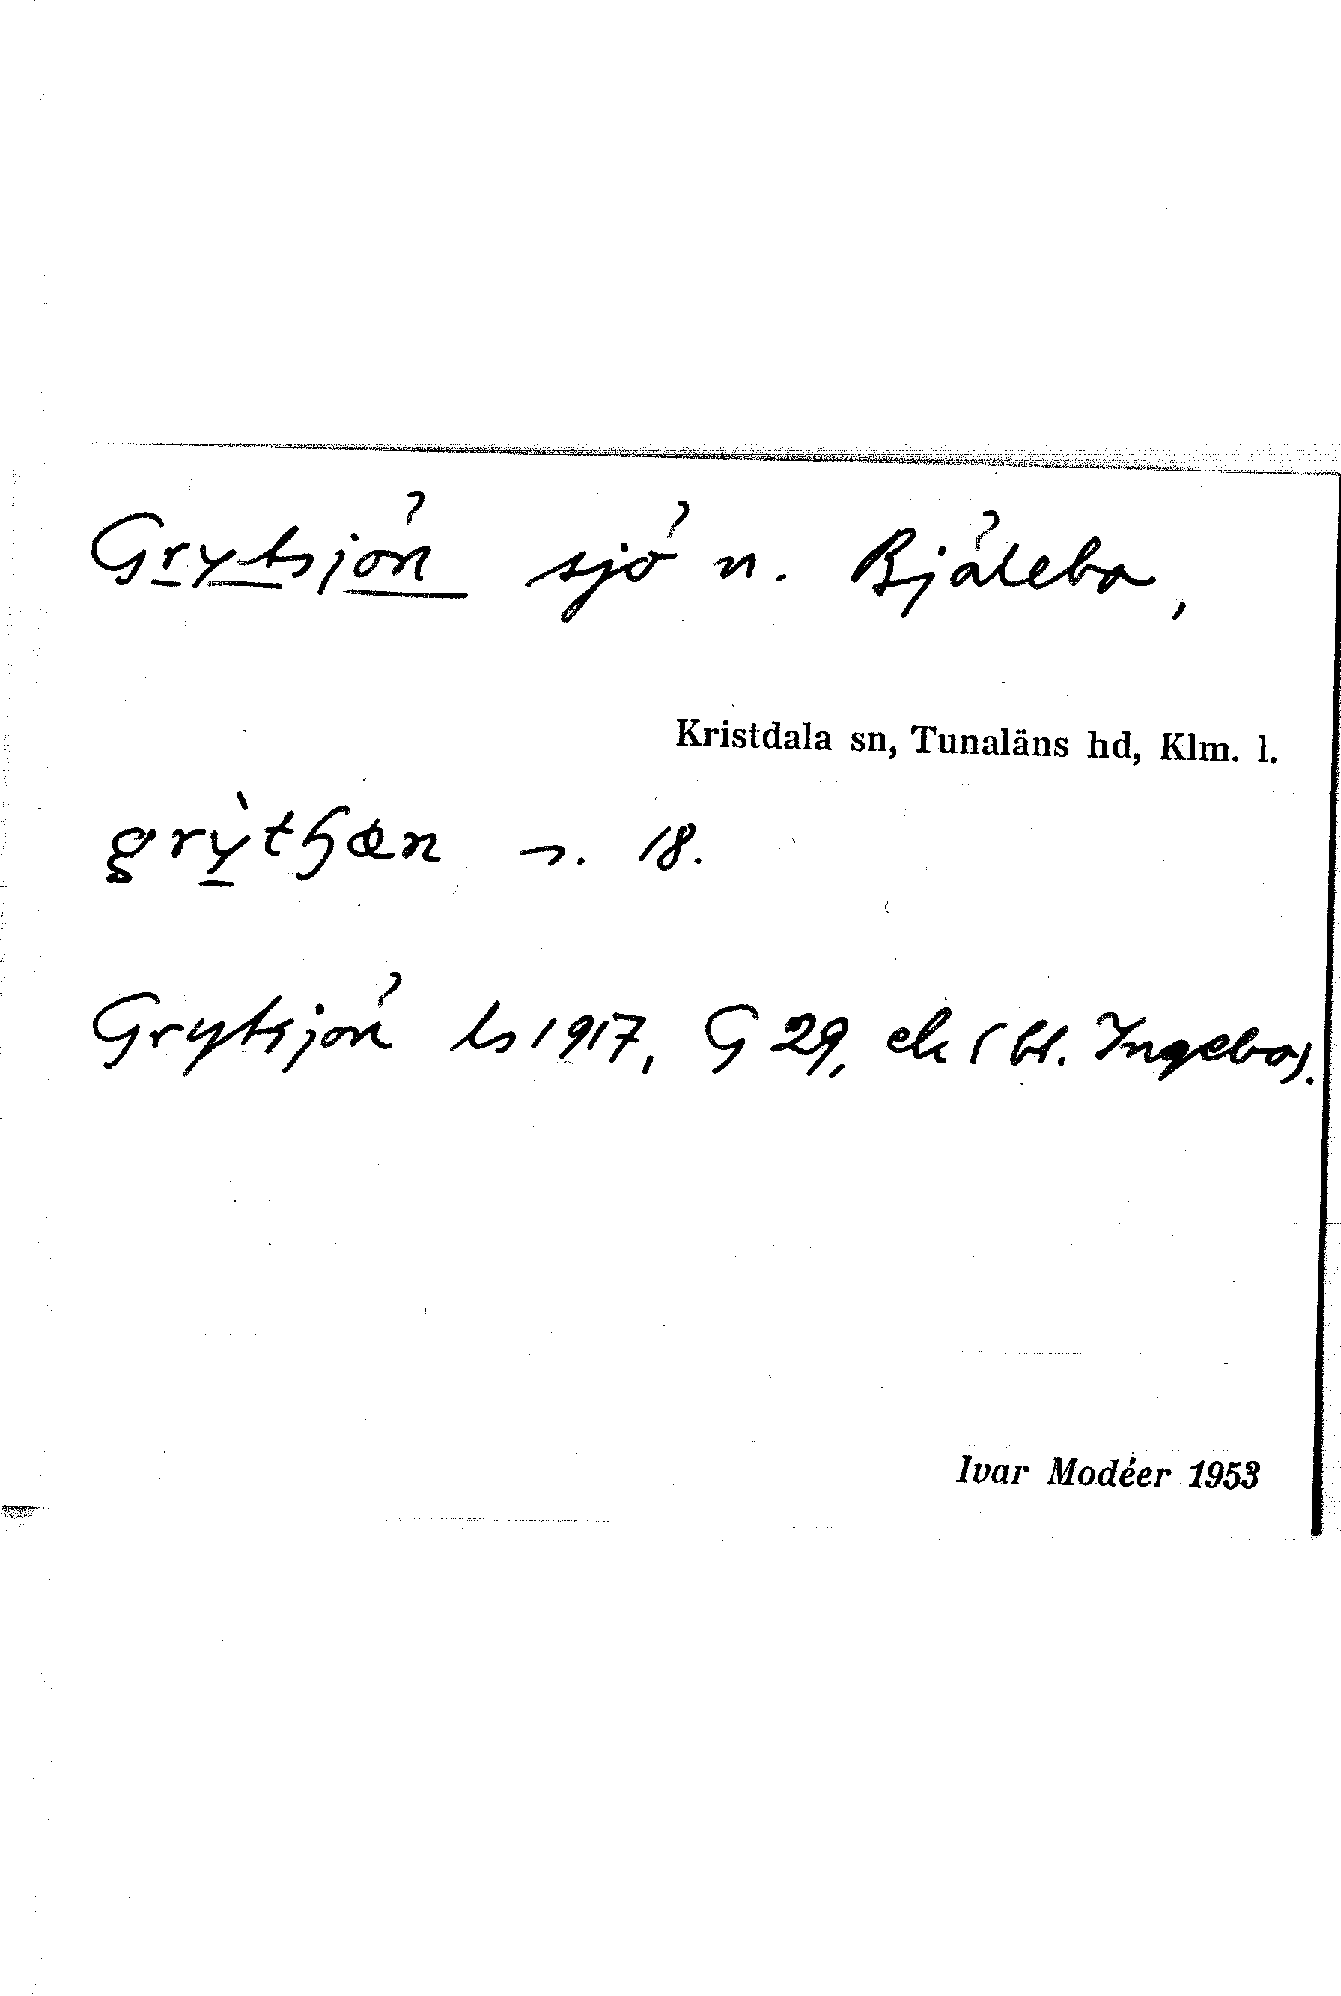 Grytsjön sjö n. Bjälebo,
Kristdala sn, Tunaläns hd, Klm. l.
grỳtɧøn n. 18.
Grytsjön ls 1917, G 29, ek (bl. Ingebo).
Ivar Modéer 1953